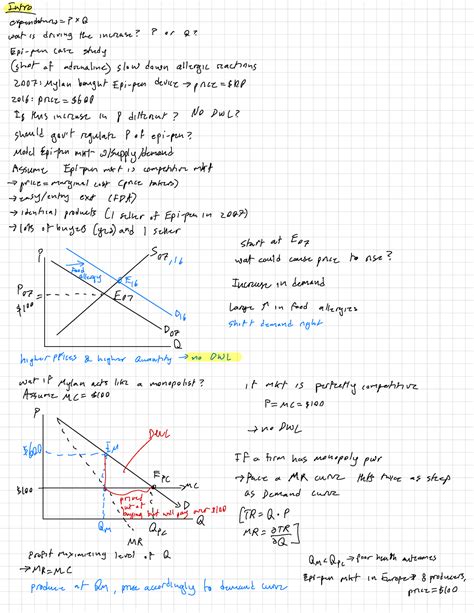 Intro
expenditures = P × Q
what is driving the increase? P or Q?
Epi-pen case study
(shot at adrenaline) slow down allergic reactions
2007: Mylan bought Epi-pen device → price = $100
2016: price = $600
Is this increase in P different? No DWL?
should gov't regulate P of epi-pen?
Model Epi-pen mkt w/supply/demand
Assume Epi-pen mkt is competitive mkt
→ price = marginal cost (price takers)
→ easy/entry exit (FDA)
→ identical products (1 seller of Epi-pen in 2007)
→ lots of buyers (yes) and 1 seller
P
S07,16
Food
allergy
E16
P07
$100
E07
D16
D07
Q
start at E07
what could cause price to rise?
Increase in demand
Large ↑ in food allergies
shift demand right
higher prices & higher quantity → no DWL
what if Mylan acts like a monopolist?
Assume MC = $100
P
DWL
$600
EM
EPC
$100
MC
priced
out of
buying but will pay over $100
D
QM
QPC
Q
MR
profit maximizing level of Q
→ MR = MC
produce at QM, price accordingly to demand curve
if mkt is perfectly competitive
P = MC = $100
→ no DWL
If a firm has monopoly pwr
→ Face a MR curve thats twice as steep
as Demand curve
[TR = Q · P
MR = ∂TR/∂Q]
QM < QPC → poor health outcomes
Epi-pen mkt in Europe 8 producers,
price = $100